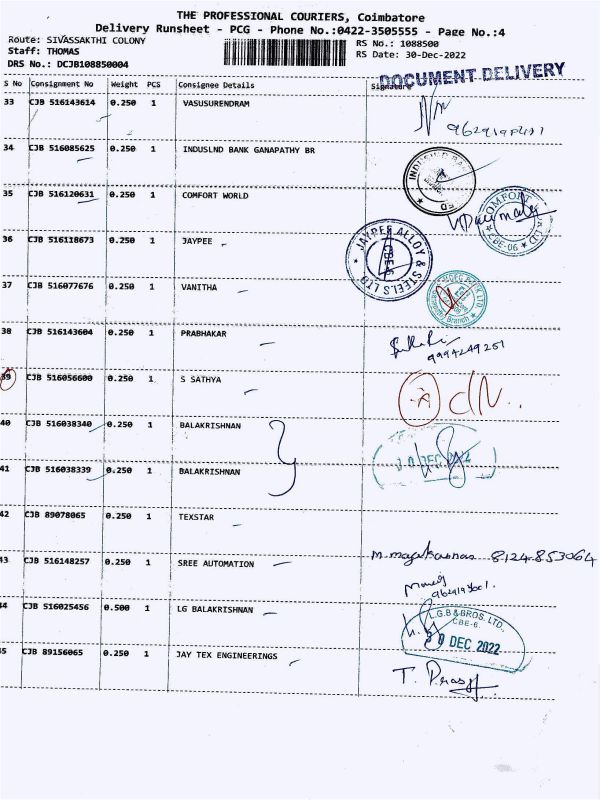 THE PROFESSIONAL COURIERS, Coimbatore
Delivery Runsheet - PCG - Phone No.:0422-3505555 - Page No.:4
Route: SIVASSAKTHI COLONY
RS No.: 1088500
Staff: THOMAS
RS Date: 30-Dec-2022
DRS No.: DCJB108850004
DOCUMENT DELIVERY
S No Consignment No Weight PCS Consignee Details Signature
33 CJB 516143614 0.250 1 VASUSURENDRAM
34 CJB 516085625 0.250 1 INDUSLND BANK GANAPATHY BR
35 CJB 516120631 0.250 1 COMFORT WORLD
COMFORT
CBE-06
36 CJB 516118673 0.250 1 JAYPEE
JAYPEE ALLOY & STEELS LTD
CBE-6
37 CJB 516077676 0.250 1 VANITHA
38 CJB 516143604 0.250 1 PRABHAKAR
9994249251
39 CJB 516056600 0.250 1 S SATHYA
40 CJB 516038340 0.250 1 BALAKRISHNAN
30 DEC 2022
41 CJB 516038339 0.250 1 BALAKRISHNAN
42 CJB 89078065 0.250 1 TEXSTAR
43 CJB 516148257 0.250 1 SREE AUTOMATION
8124853064
44 CJB 516025456 0.500 1 LG BALAKRISHNAN
L.G.B & BROS. LTD.,
CBE-6.
30 DEC 2022
45 CJB 89156065 0.250 1 JAY TEX ENGINEERINGS